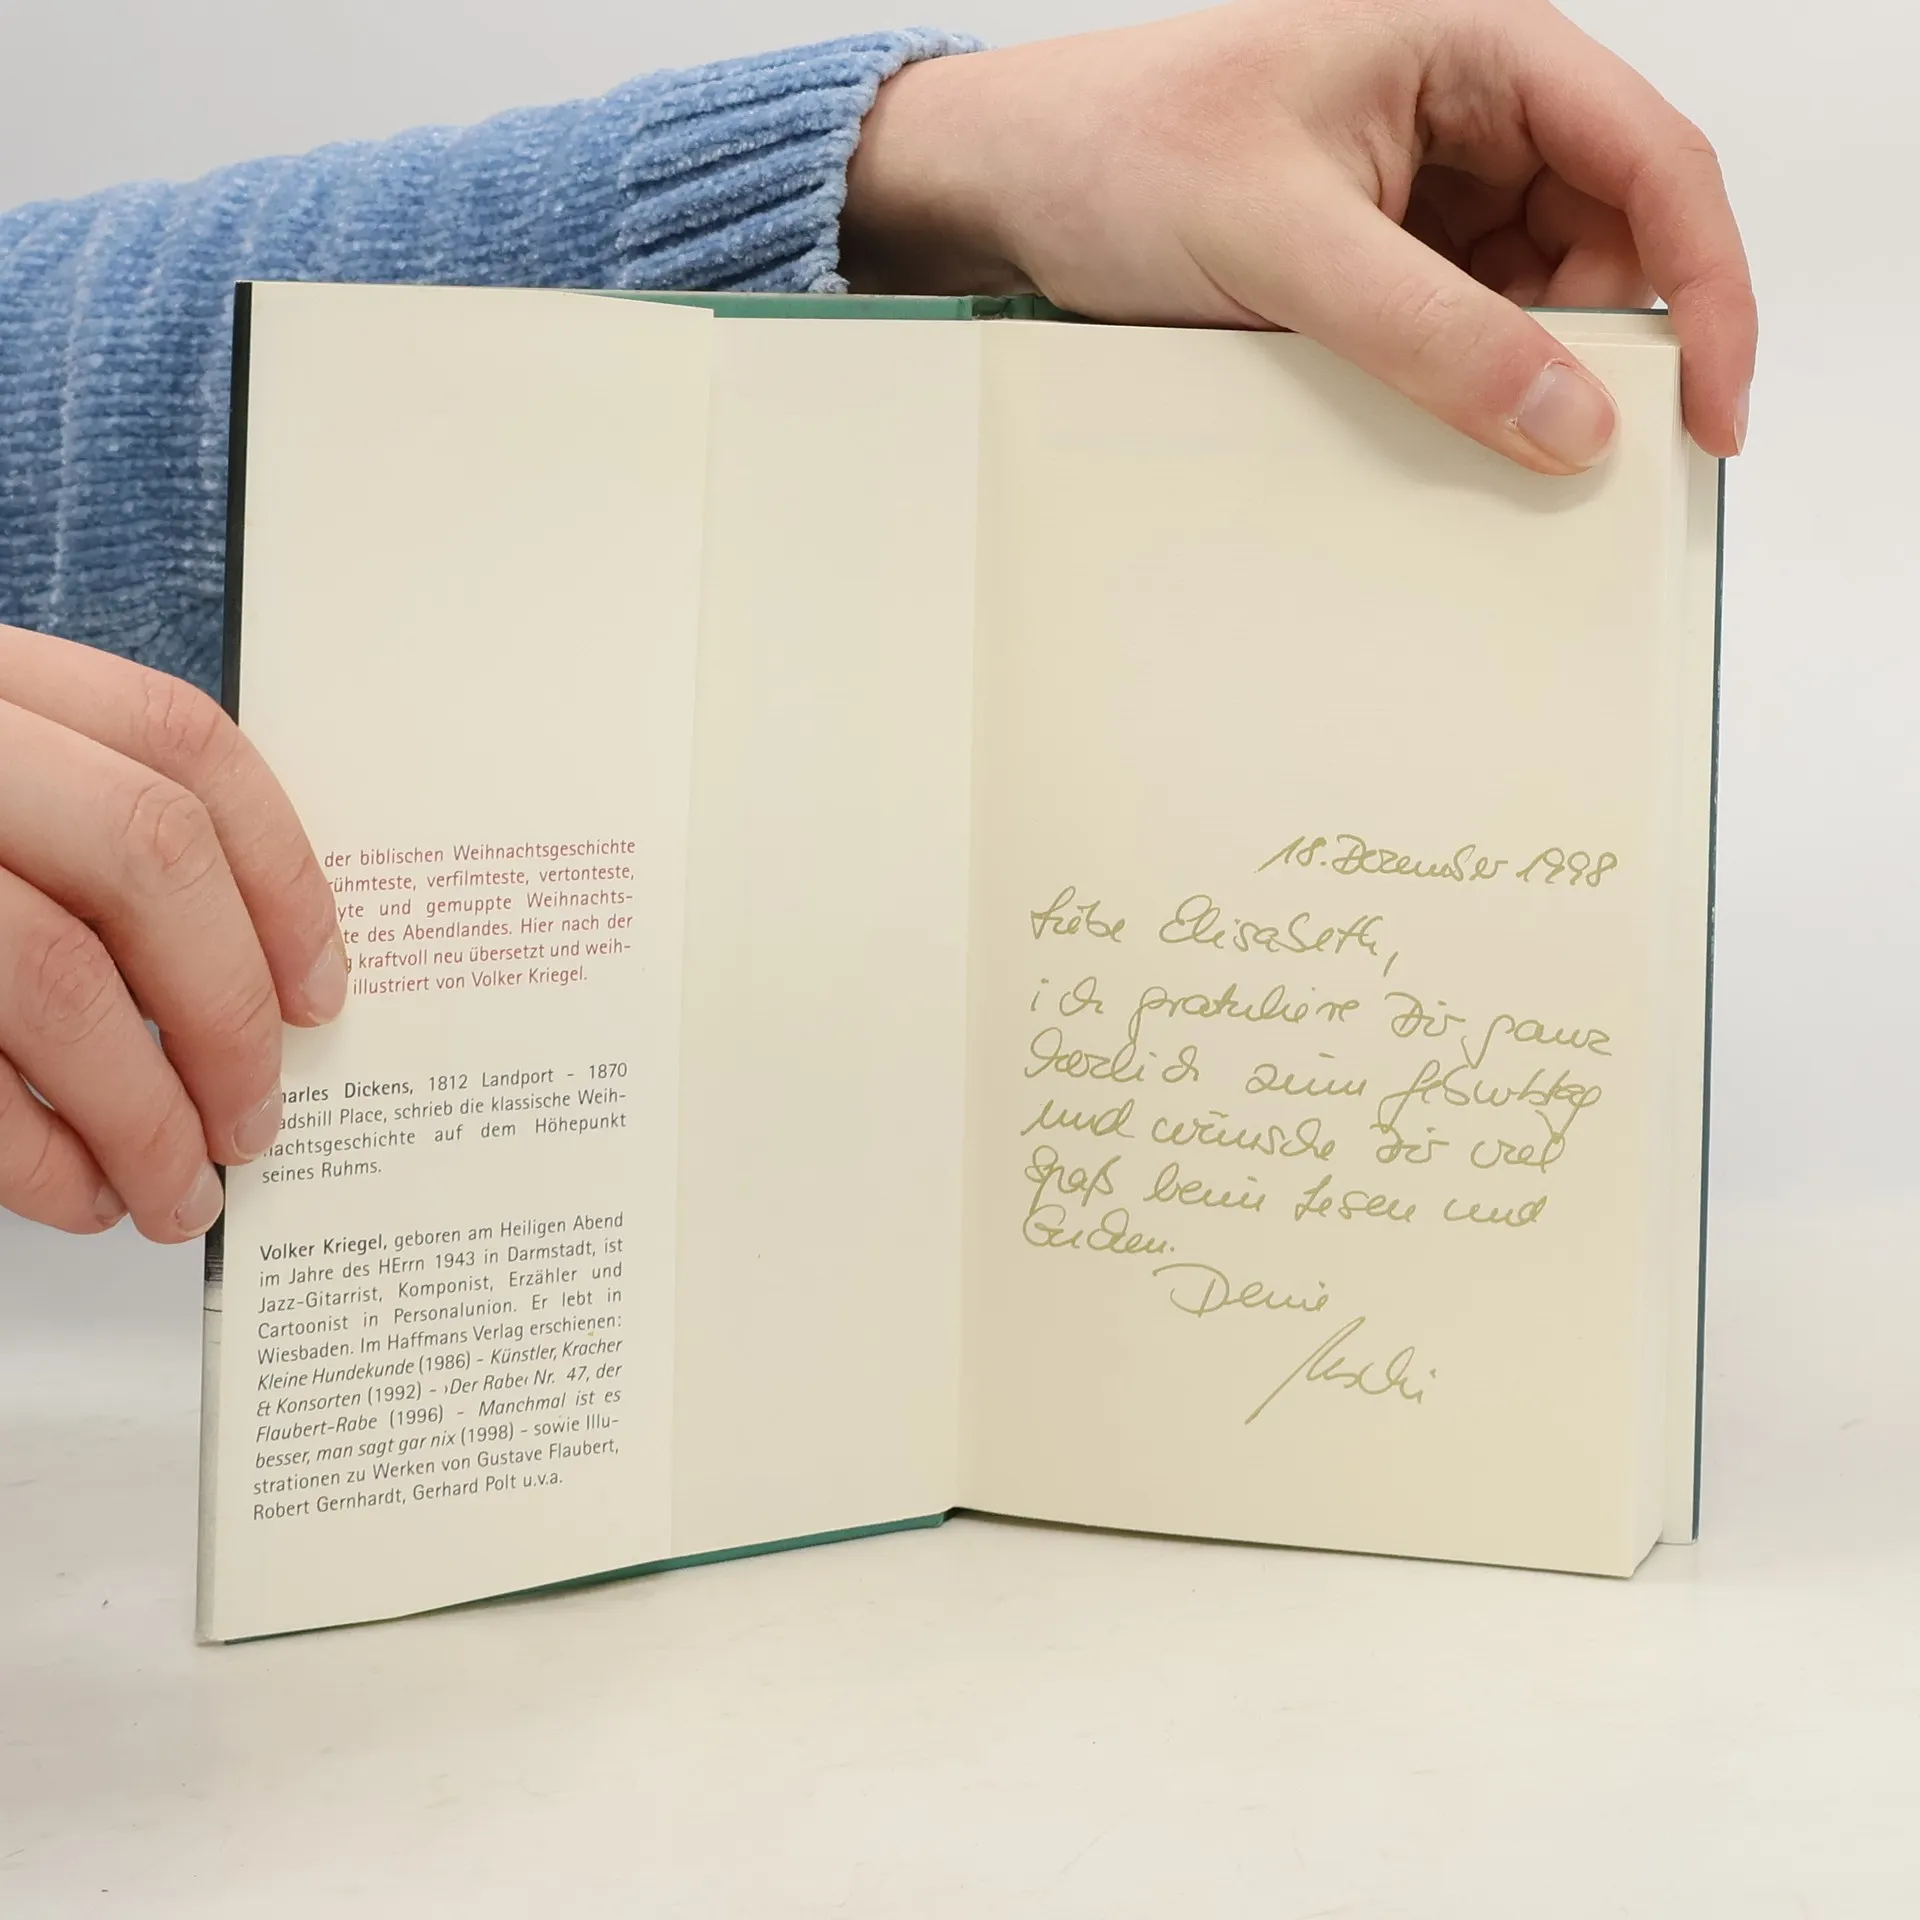 der biblischen Weihnachtsgeschichte
rühmteste, verfilmteste, vertonteste,
yte und gemuppte Weihnachts-
te des Abendlandes. Hier nach der
g kraftvoll neu übersetzt und weih-
illustriert von Volker Kriegel.
harles Dickens, 1812 Landport - 1870
adshill Place, schrieb die klassische Weih-
nachtsgeschichte auf dem Höhepunkt
seines Ruhms.
Volker Kriegel, geboren am Heiligen Abend
im Jahre des HErrn 1943 in Darmstadt, ist
Jazz-Gitarrist, Komponist, Erzähler und
Cartoonist in Personalunion. Er lebt in
Wiesbaden. Im Haffmans Verlag erschienen:
Kleine Hundekunde (1986) – Künstler, Kracher
& Konsorten (1992) – ›Der Rabe‹ Nr. 47, der
Flaubert-Rabe (1996) – Manchmal ist es
besser, man sagt gar nix (1998) – sowie Illu-
strationen zu Werken von Gustave Flaubert,
Robert Gernhardt, Gerhard Polt u.v.a.
18. Dezember 1998
Liebe Elisabeth,
ich gratuliere Dir ganz
herzlich zum Geburtstag
und wünsche Dir viel
Spaß beim Lesen und
Gucken.
Deine